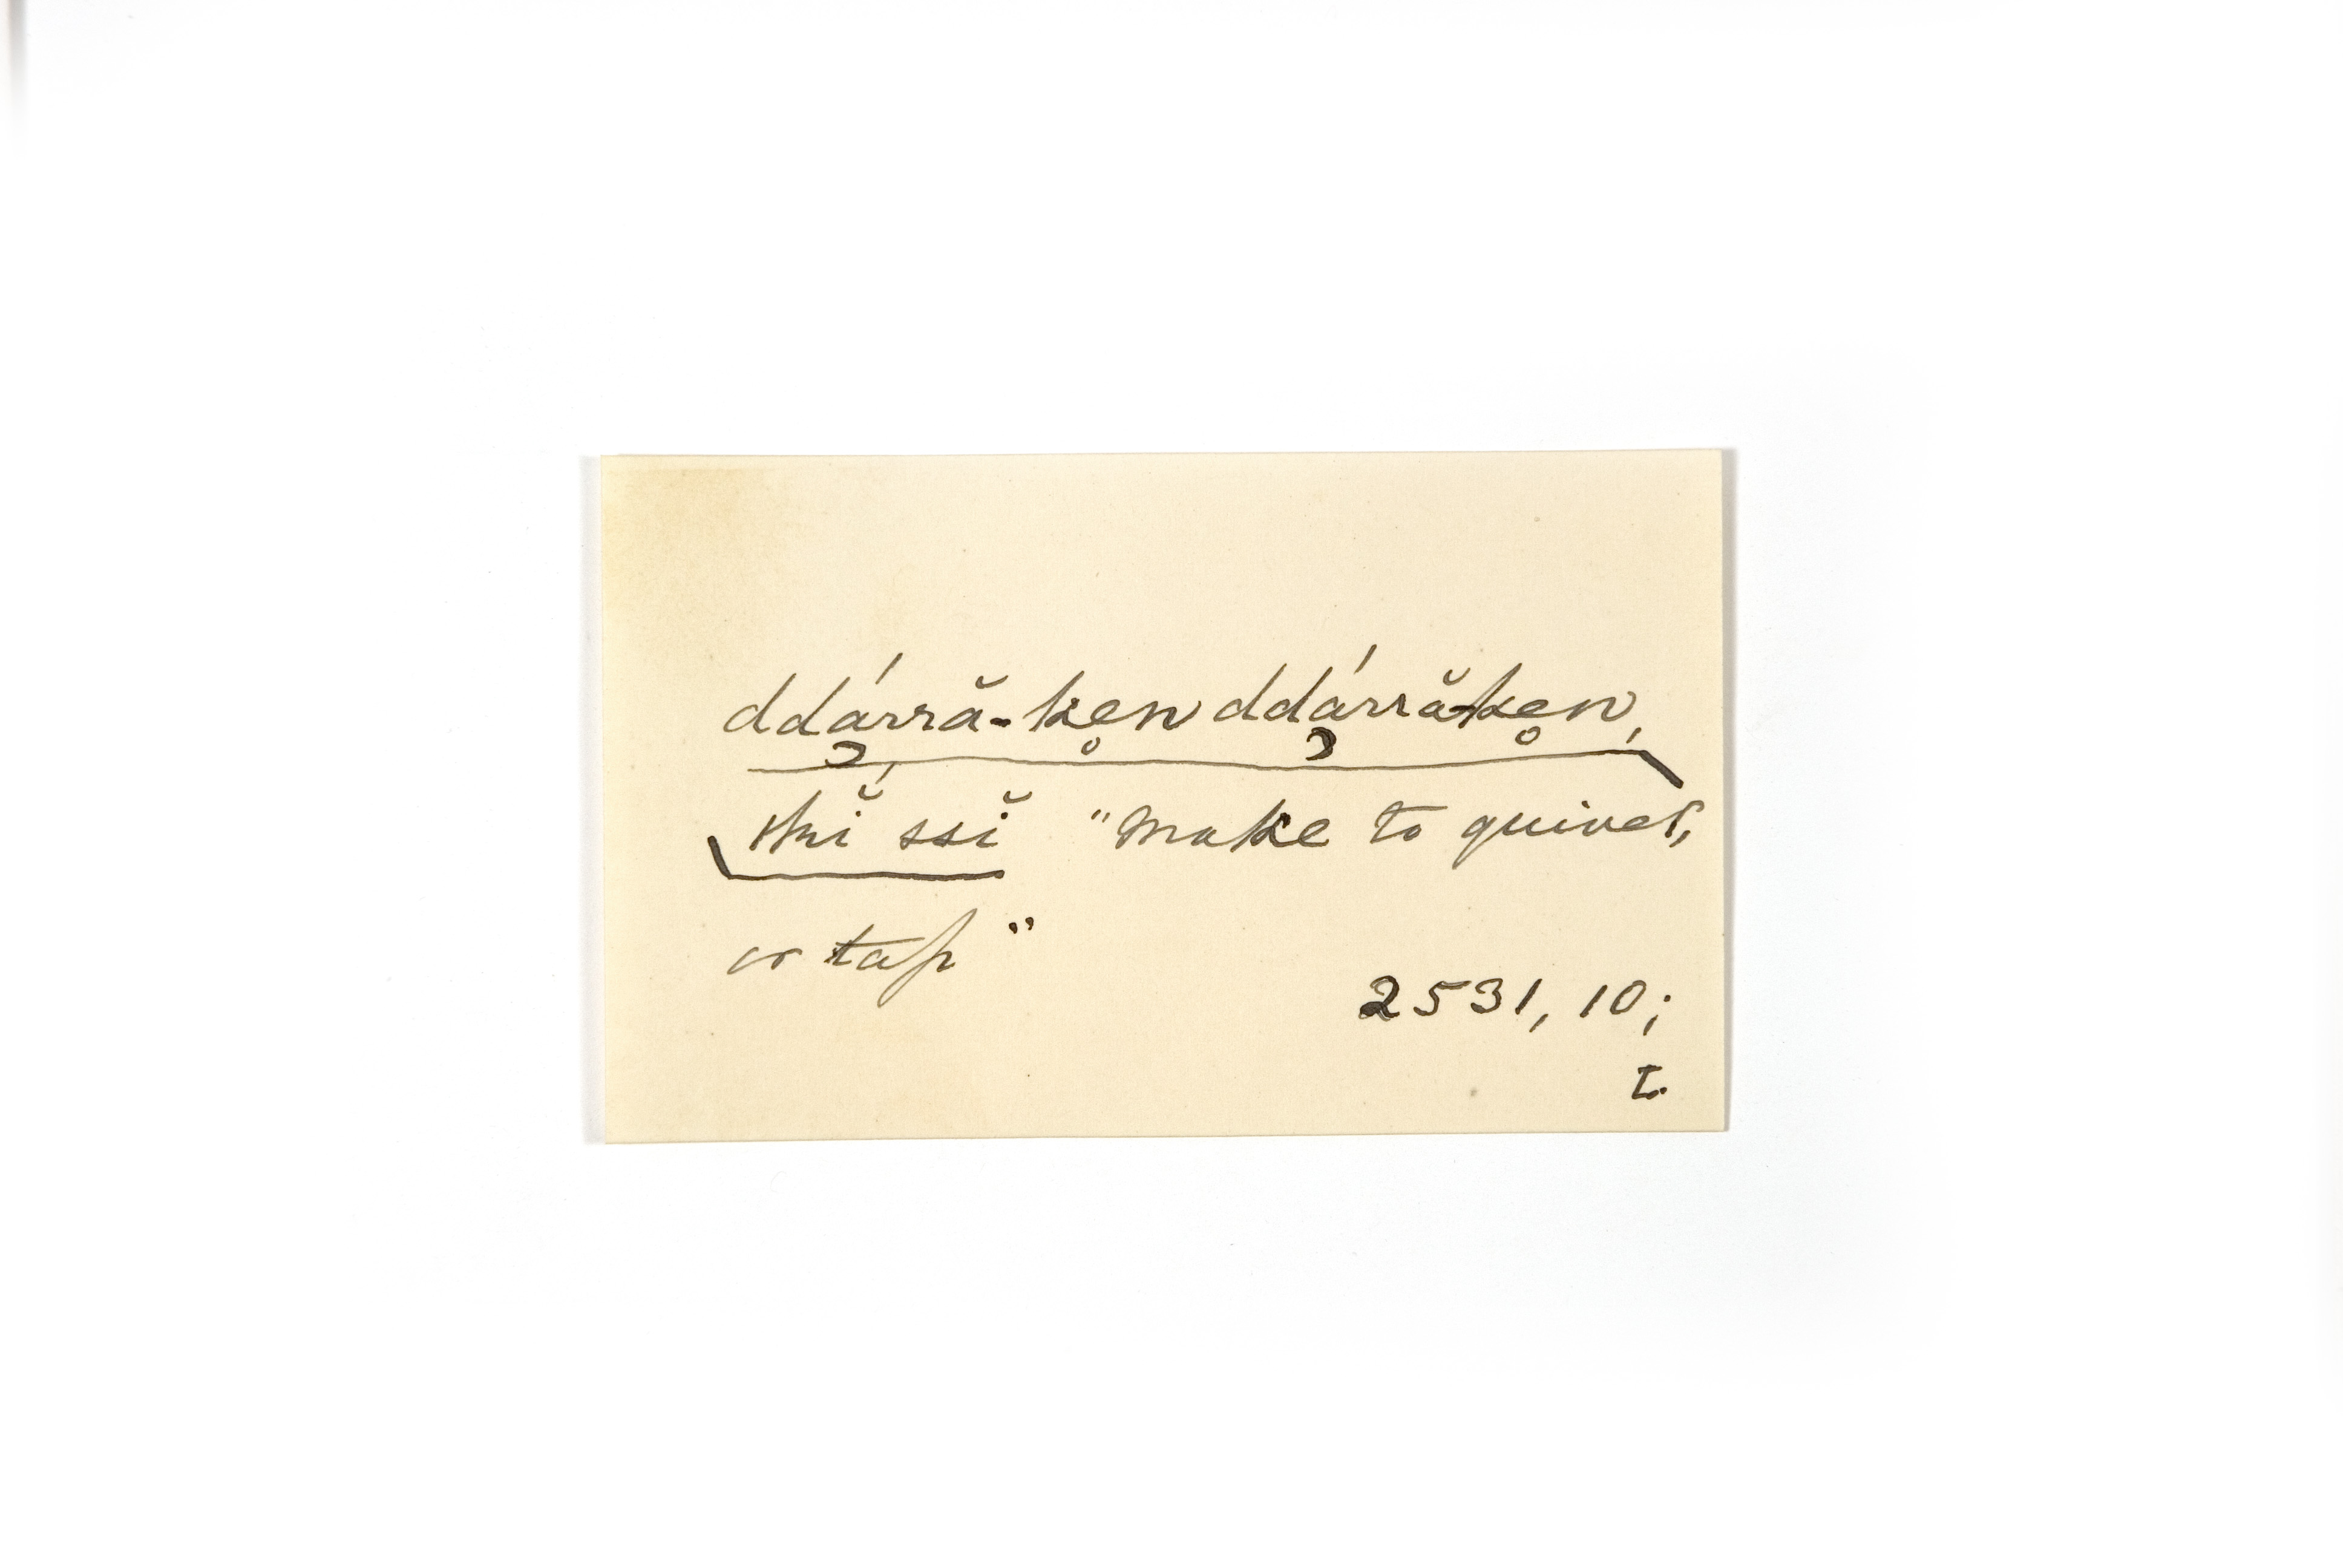 ddárră-ken ddárră-ken,
ssĭ "make to quiver,
or tap"
2531, 10;
t.